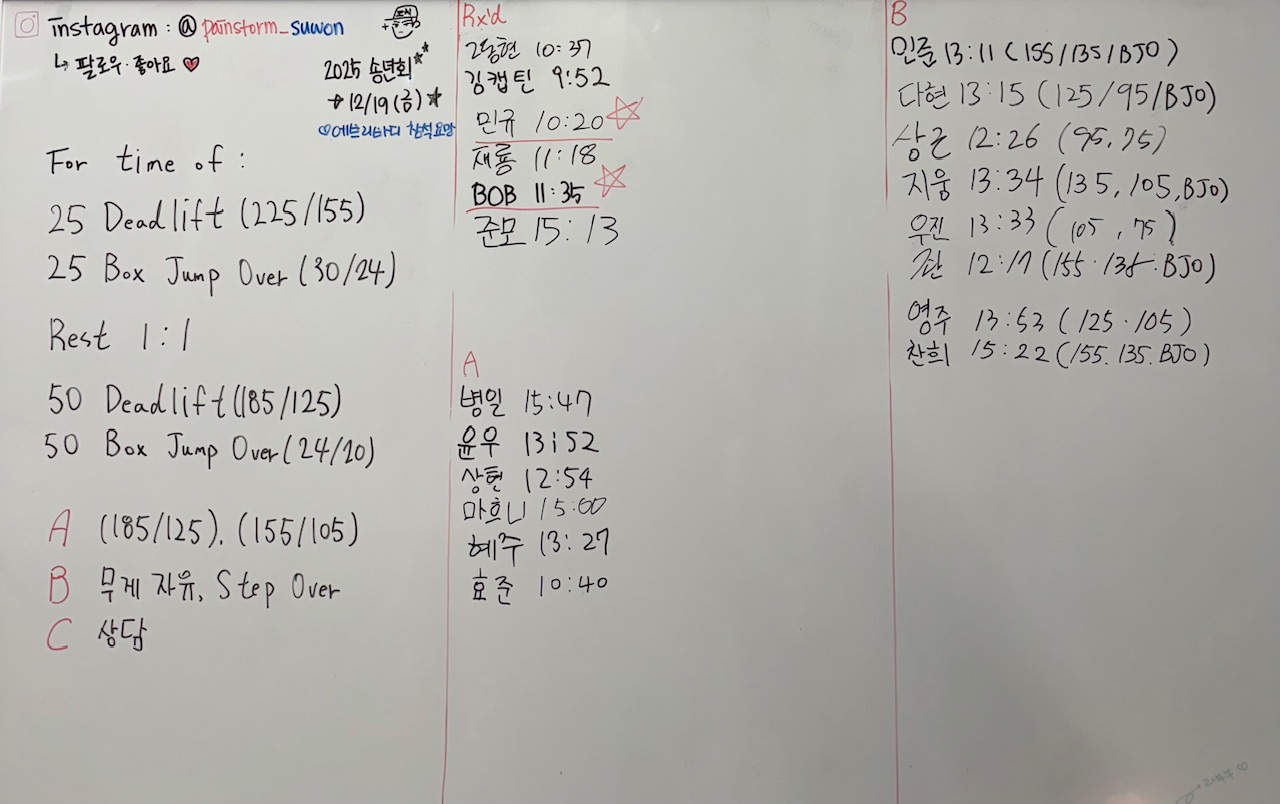 instagram : @ painstorm_suwon
↳ 팔로우·좋아요 ♥
2025 송년회
→ 12/19 (금)
♡에브리바디 참석요망
For time of :
25 Deadlift (225/155)
25 Box Jump Over (30/24)
Rest 1:1
50 Deadlift (185/125)
50 Box Jump Over (24/20)
A (185/125), (155/105)
B 무게 자유, Step Over
C 상담
Rx'd
10:37
김캡틴 9:52
민규 10:20 ☆
재룡 11:18
BOB 11:35 ☆
준모 15:13
A
병일 15:47
윤우 13:52
상현 12:54
마흐니 15:00
혜주 13:27
효준 10:40
B
민준 13:11 (155/135/BJO)
다현 13:15 (125/95/BJO)
상근 12:26 (95, 75)
지웅 13:34 (135, 105, BJO)
우진 13:33 (105, 75)
12:17 (155·135·BJO)
영주 13:53 (125·105)
찬희 15:22 (155.135.BJO)